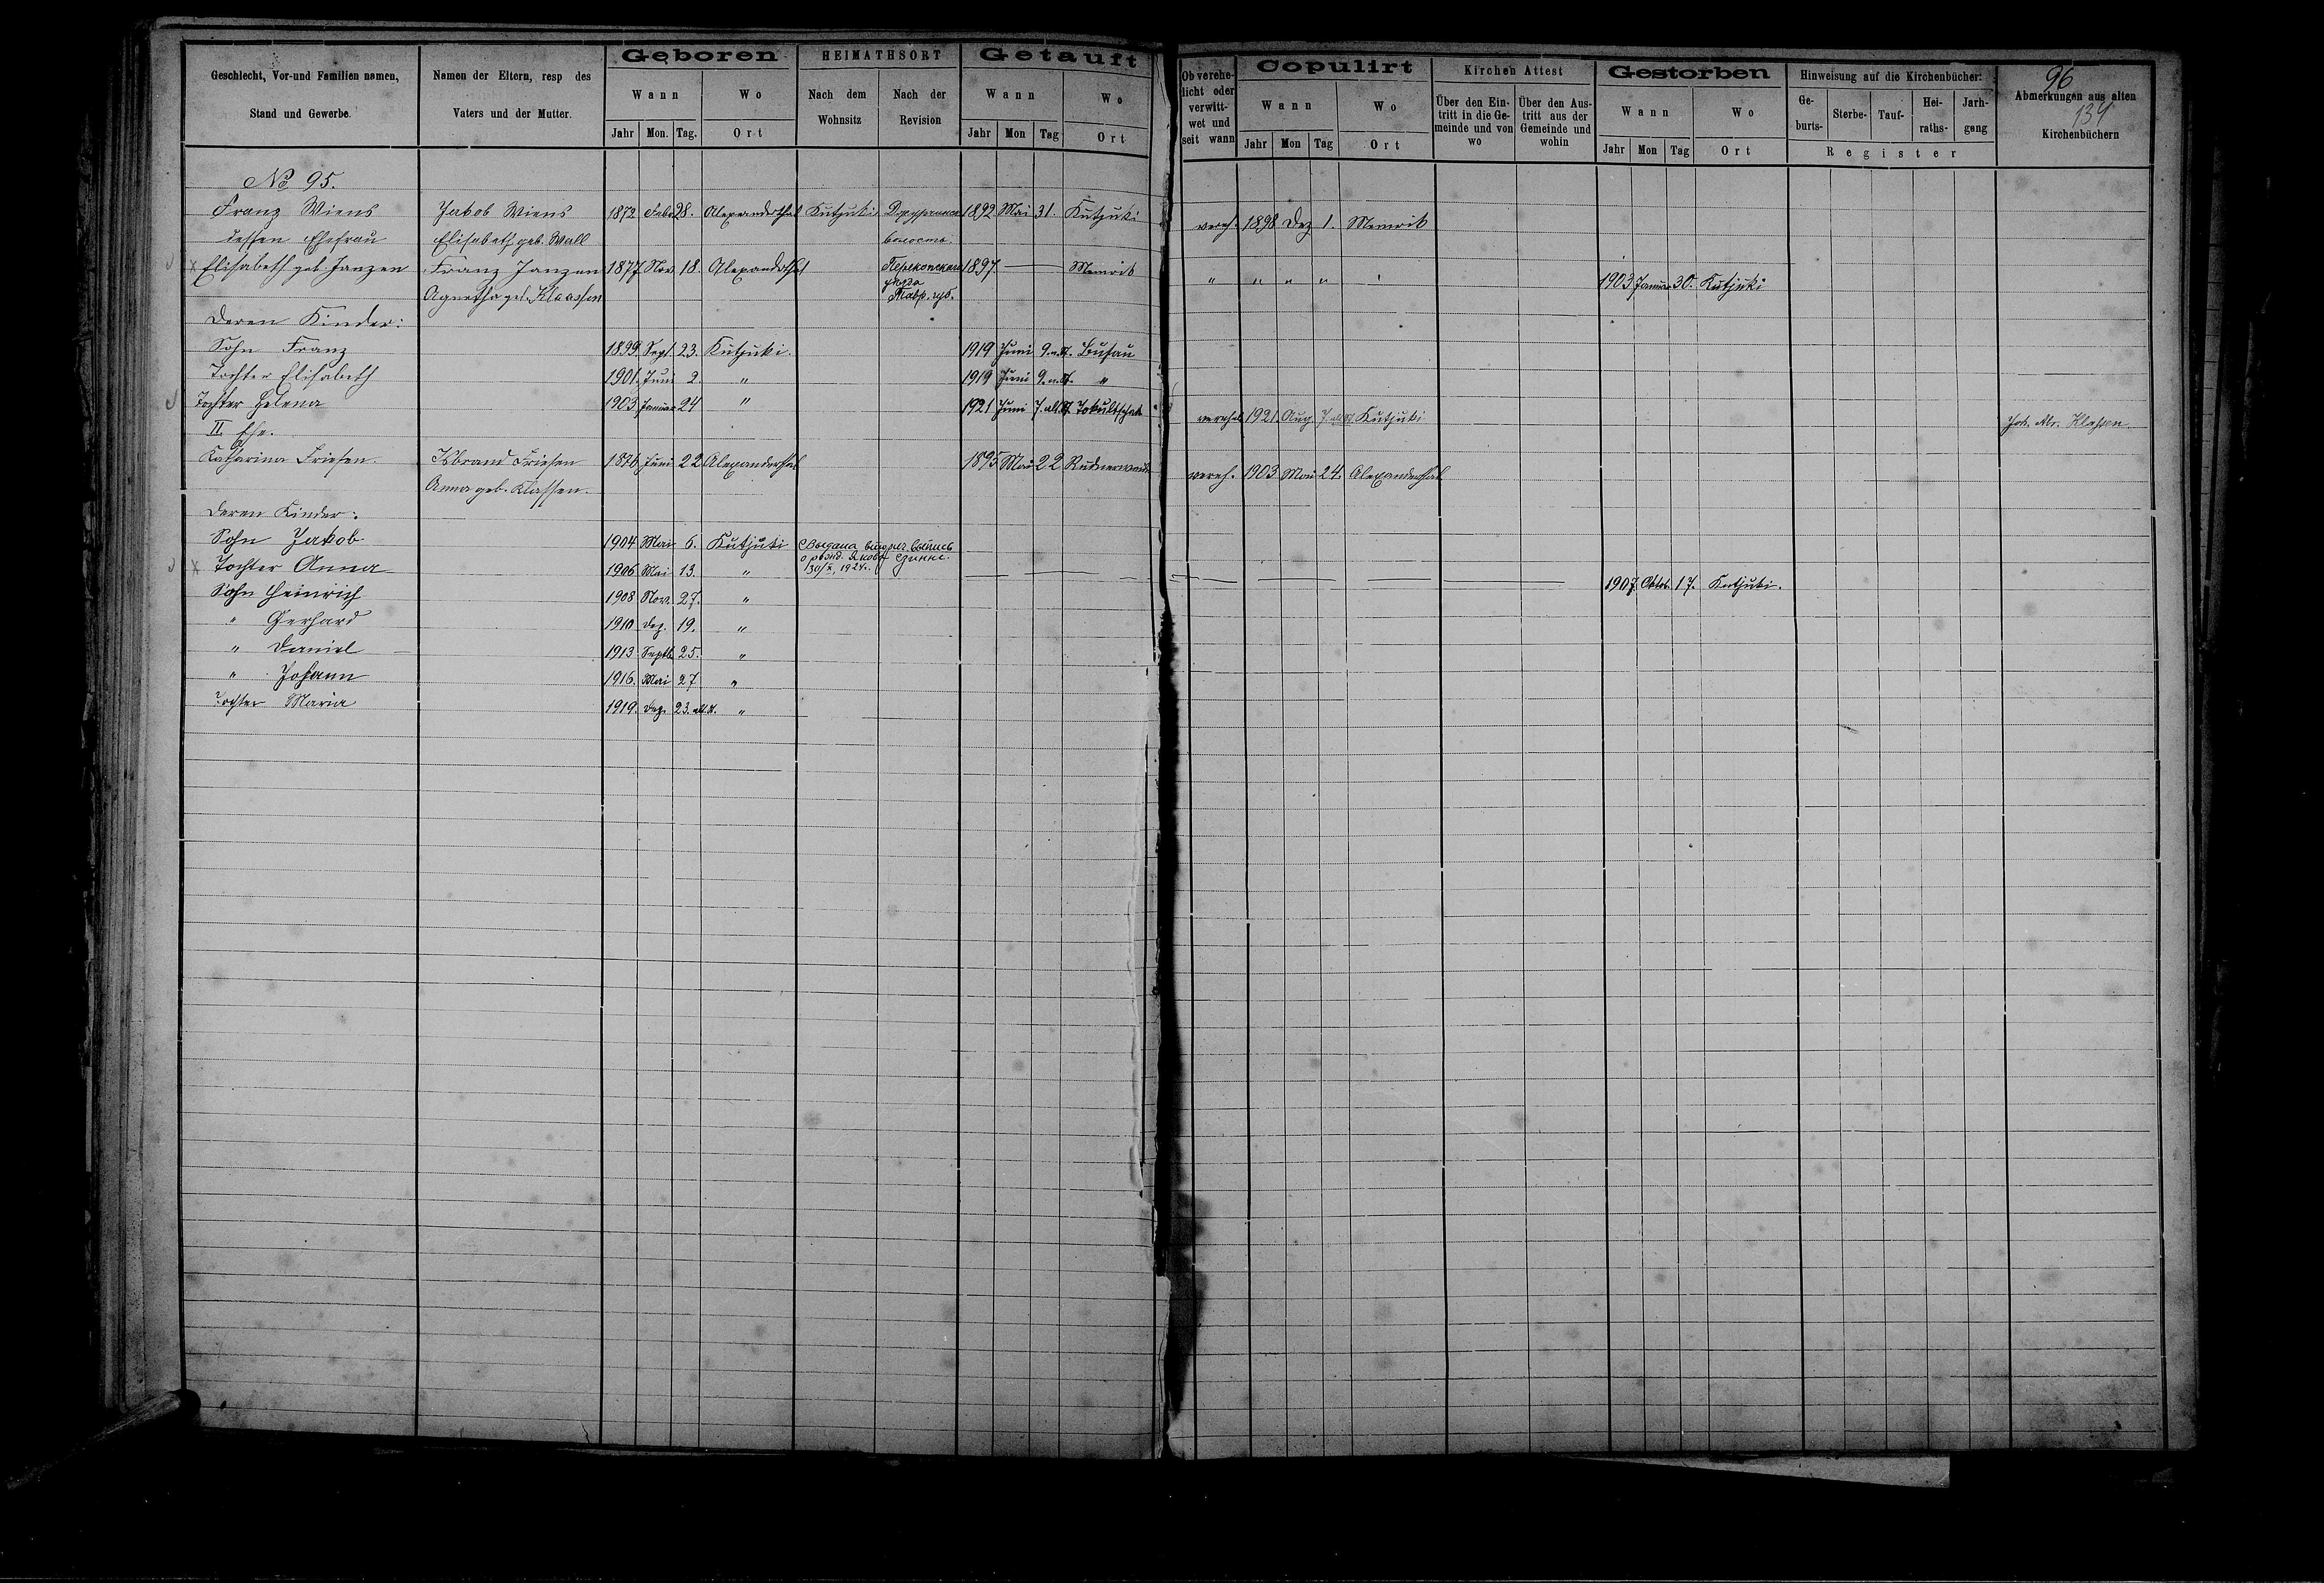 Geschlecht, Vor-und Familien namen, Stand und Gewerbe.
Namen der Eltern, resp des Vaters und der Mutter.
Geboren
Wann Wo
Jahr Mon. Tag. Ort
HEIMATHSORT
Nach dem Wohnsitz
Nach der Revision
Getauft
Wann Wo
Jahr Mon Tag Ort
Ob verehe-
licht oder
verwitt-
wet und
seit wann
Copulirt
Wann Wo
Jahr Mon Tag Ort
Kirchen Attest
Über den Ein-
tritt in die Ge-
meinde und von
wo
Über den Aus-
tritt aus der
Gemeinde und
wohin
Gestorben
Wann Wo
Jahr Mon Tag Ort
Hinweisung auf die Kirchenbücher:
Ge-
burts-
Sterbe-
Tauf-
Hei-
raths-
Jarh-
gang
Register
96
Abmerkungen aus alten
134
Kirchenbüchern
№ 95.
Franz Wiens Jakob Wiens 1872 Febr. 28. Alexanderthal Kutjuki 1892 Mai 31. Kutjuki vereh. 1898 Dez 1. Memrik
dessen Ehefrau Elisabeth geb. Wall волость.
x Elisabeth geb. Janzen Franz Janzen 1877 Nov. 18. Alexanderthal Перекопскаго 1897 — Memrik " " " " " 1903 Januar 30. Kutjuki
Agnetha geb. Klaassen уезда
Тавр. губ.
Deren Kinder:
Sohn Franz 1899 Sept. 23. Kutjuki. 1919 Juni 9. n. St. Busau
Tochter Elisabeth 1901. Juni 2. " 1919 Juni 9. n. St. "
Tochter Helena 1903 Januar 24 " 1921 Juni 7. alt. St. Tokultschak verehel. 1921. Aug. 7. alt. St. Kutjuki Joh. Klassen
II. Ehe.
Katharina Friesen. Isbrand Friesen 1876 Juni 22 Alexanderthal 1895 Mai 22 Rudnerweide vereh. 1903 Mai 24. Alexanderthal
Anna geb. Klassen.
Deren Kinder:
Sohn Jakob. 1904 Mai 6. Kutjuki
x Tochter Anna 1906 Mai 13. " 30/X, 1924. 1907. Oktob. 17. Kutjuki.
Sohn Heinrich 1908 Nov. 27. "
" Gerhard 1910 Dez. 19. "
" Daniel 1913 Septb. 25. "
" Johann 1916. Mai 27 "
Tochter Maria 1919. Dez. 23. alt. St. "